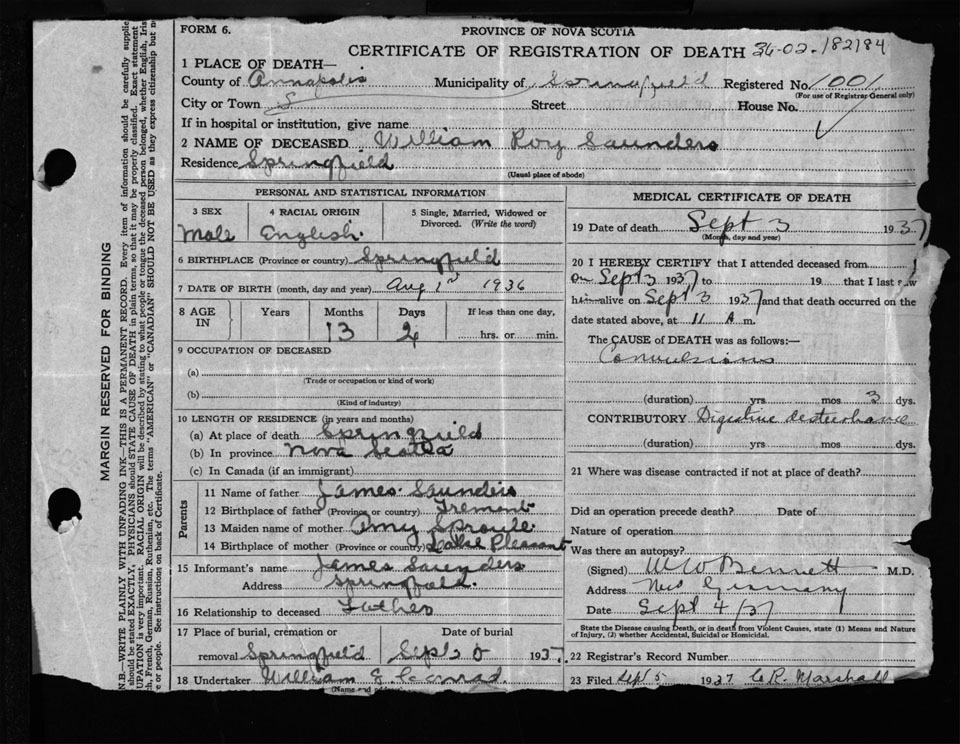 FORM 6.
PROVINCE OF NOVA SCOTIA
CERTIFICATE OF REGISTRATION OF DEATH 36-02-182184
1 PLACE OF DEATH—
County of Annapolis Municipality of Springfield Registered No. 1001
(For use of Registrar General only)
City or Town S Street House No.
If in hospital or institution, give name
2 NAME OF DECEASED William Roy Saunders
Residence Springfield
(Usual place of abode)
PERSONAL AND STATISTICAL INFORMATION
3 SEX 4 RACIAL ORIGIN 5 Single, Married, Widowed or Divorced. (Write the word)
Male English
6 BIRTHPLACE (Province or country) Springfield
7 DATE OF BIRTH (month, day and year) Aug 1st 1936
8 AGE IN Years Months Days If less than one day,
13 2 hrs. or min.
9 OCCUPATION OF DECEASED
(a)
(Trade or occupation or kind of work)
(b)
(Kind of industry)
10 LENGTH OF RESIDENCE (in years and months)
(a) At place of death Springfield
(b) In province Nova Scotia
(c) In Canada (if an immigrant)
Parents
11 Name of father James Saunders
12 Birthplace of father (Province or country) Tremont
13 Maiden name of mother Amy Sproule
14 Birthplace of mother (Province or country) Lake Pleasant
15 Informant's name James Saunders
Address Springfield.
16 Relationship to deceased Father
17 Place of burial, cremation or Date of burial
removal Springfield Sept 5 1937.
18 Undertaker William Conrad.
(Name and address)
MEDICAL CERTIFICATE OF DEATH
19 Date of death Sept 3 1937
(Month, day and year)
20 I HEREBY CERTIFY that I attended deceased from
on Sept 3 1937 to 19 that I last saw
him alive on Sept 3 1937 and that death occurred on the
date stated above, at 11 A m.
The CAUSE of DEATH was as follows:—
Convulsions
(duration) yrs mos 3 dys.
CONTRIBUTORY Digestive
(duration) yrs mos dys.
21 Where was disease contracted if not at place of death?
Did an operation precede death? Date of
Nature of operation
Was there an autopsy?
(Signed) W W Bennett M.D.
Address New Germany
Date Sept 4/37
State the Disease causing Death, or in death from Violent Causes, state (1) Means and Nature
of Injury, (2) whether Accidental, Suicidal or Homicidal.
22 Registrar's Record Number
23 Filed Sept 5 1937 C R. Marshall
MARGIN RESERVED FOR BINDING
N.B.—WRITE PLAINLY WITH UNFADING INK—THIS IS A PERMANENT RECORD. Every item of information should be carefully supplie
should be stated EXACTLY. PHYSICIANS should STATE CAUSE OF DEATH in plain terms, so that it may be properly classified. Exact statement
UPATION is very important. RACIAL ORIGIN will be described by stating to what people or tongue the deceased person belonged, whether English, Iris
h, French, German, Russian, Ruthenian, etc. The terms "AMERICAN" or "CANADIAN" SHOULD NOT BE USED as they express citizenship but n
e or people. See instructions on back of Certificate.